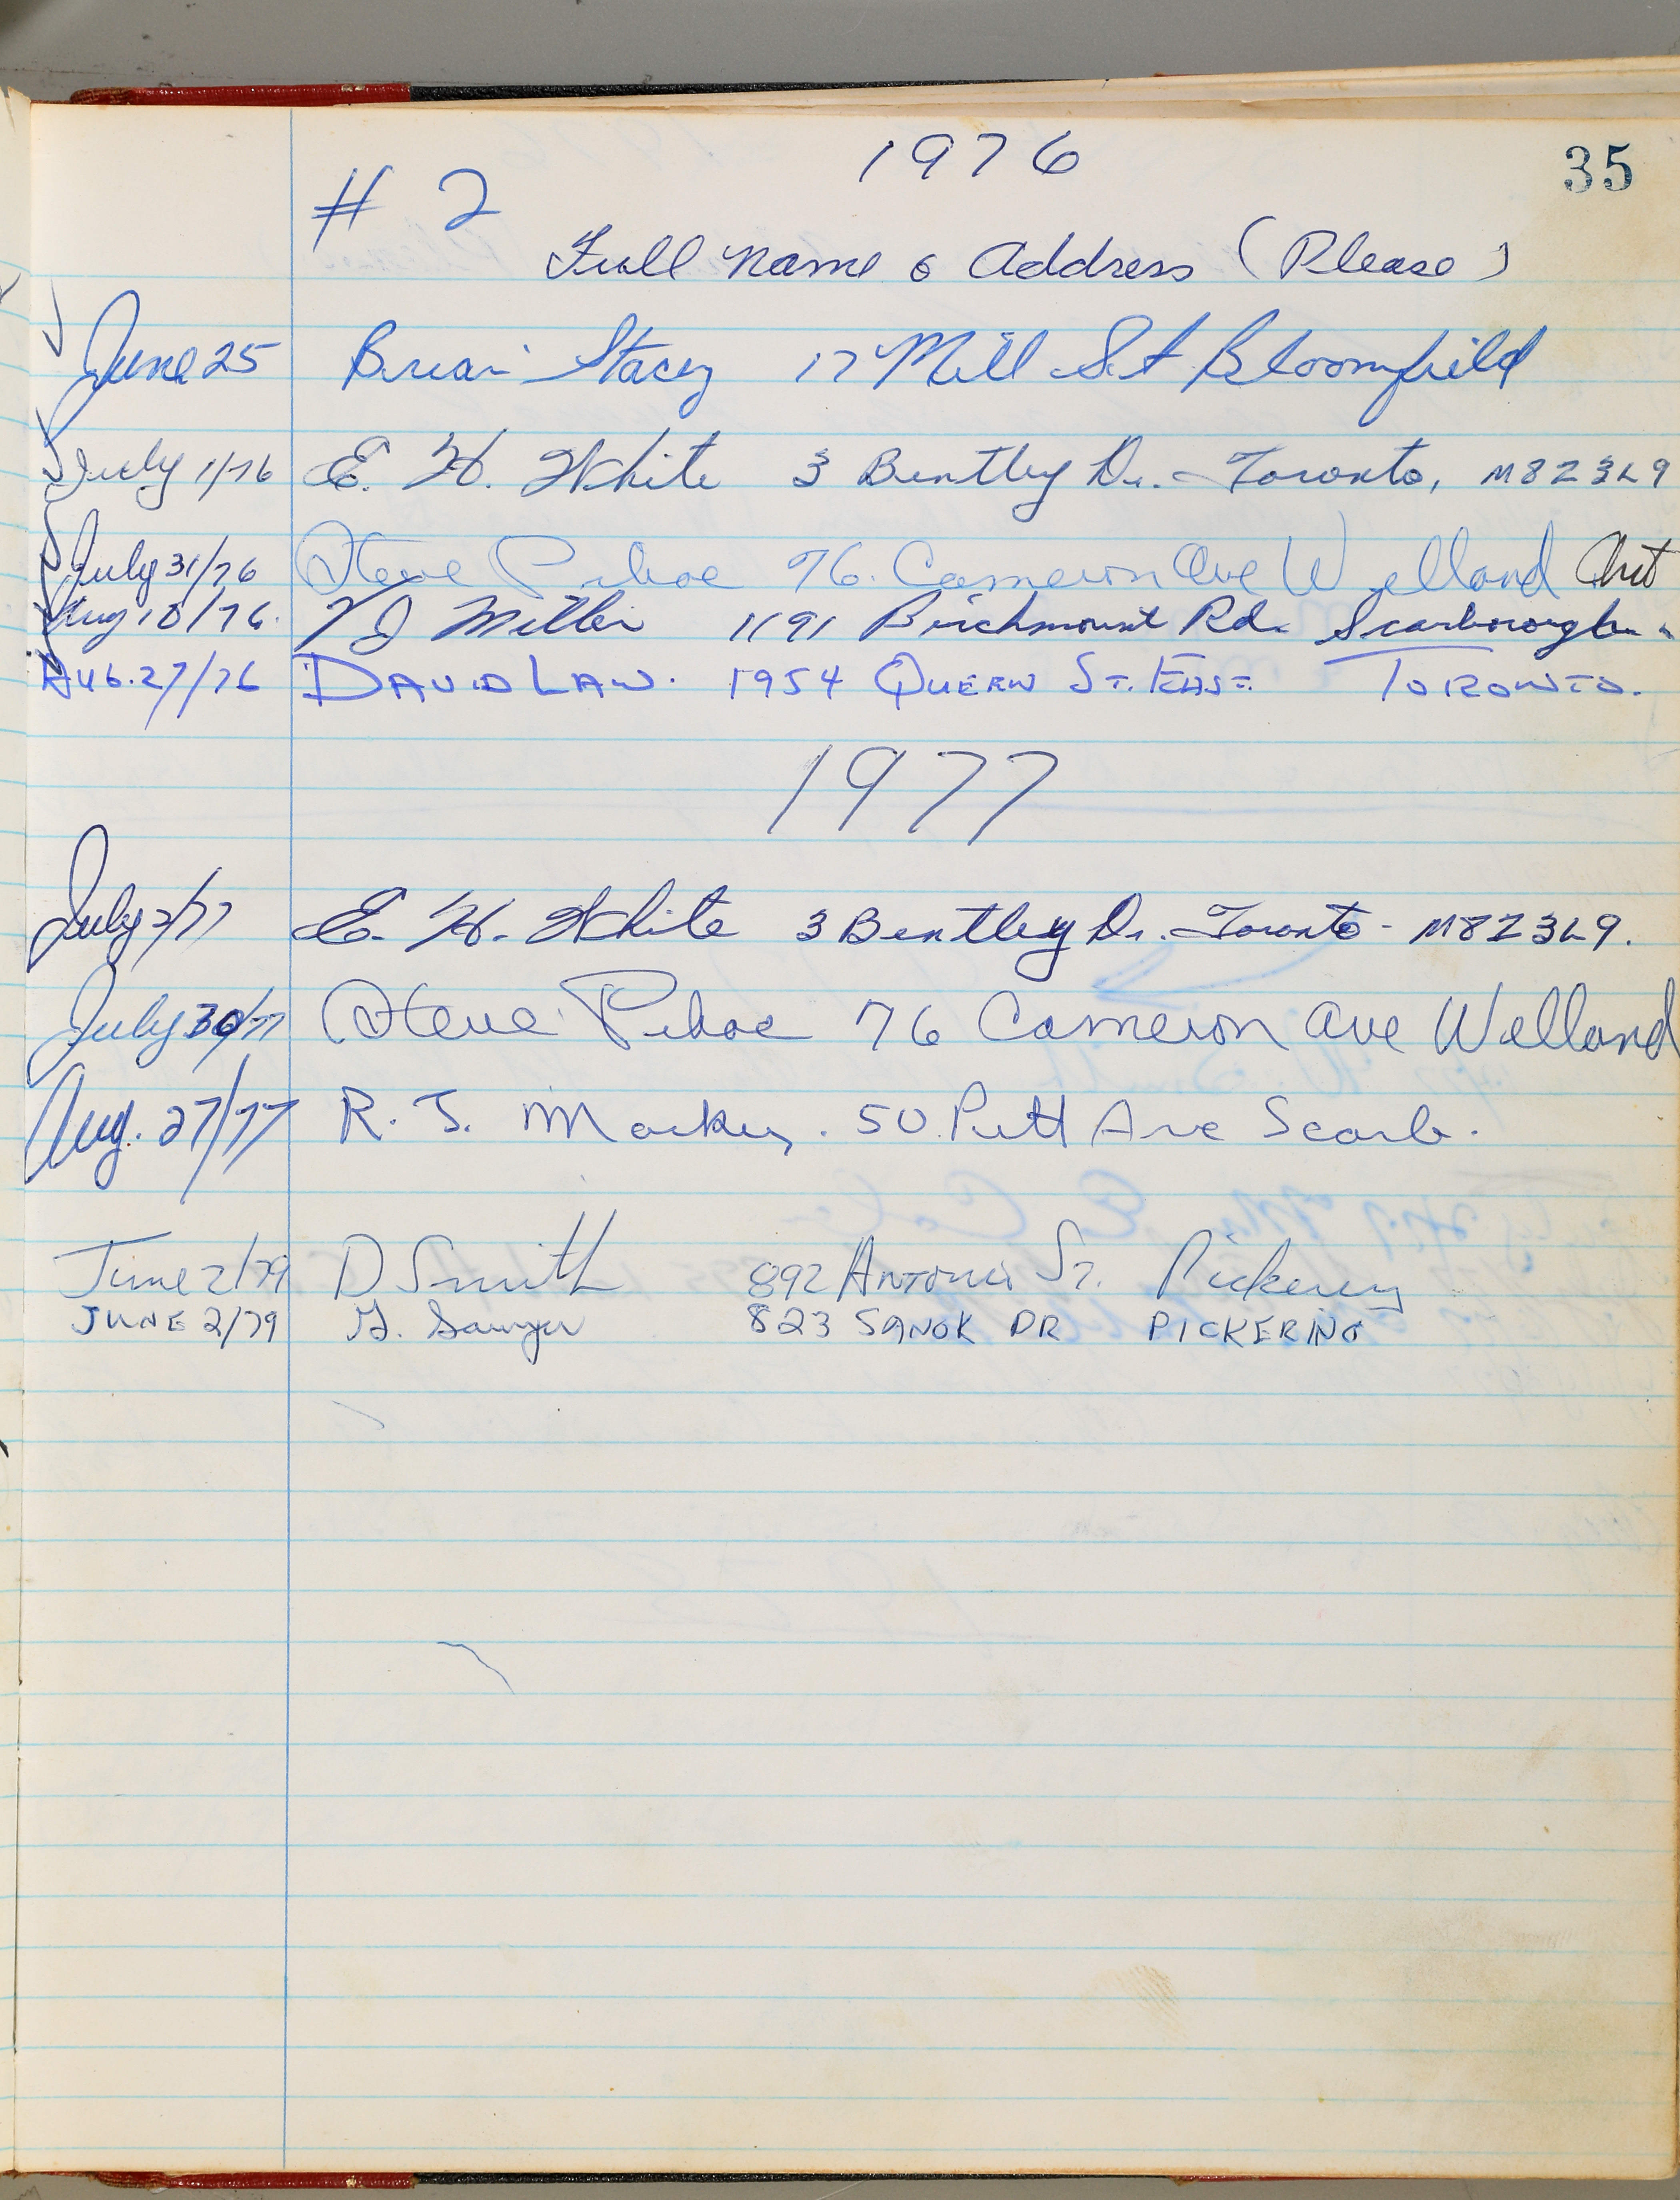 1976
35
# 2
Full Name & Address (Please)
June 25 Brian Stacey 17 Mill St Bloomfield
July 1/76 E. H. White 3 Bentley Dr. - Toronto, M8Z3L9
July 31/76 Steve 76. Cameron Ave Welland Ont
Aug 10/76. J Miller 1191 Birchmount Rd. Scarborough.
AUG. 27/76 DAVID LAW. 1954 QUEEN ST. EAST. TORONTO.
1977
July 2/77 E. H. White 3 Bentley Dr. Toronto - M8Z3L9.
July 30/77 Steve 76 Cameron Ave Welland
Aug. 27/77 R. J. 50 Ave Scarb.
June 2/79 D Smith 892 ANTONIO ST. Pickering
JUNE 2/79 G. Sawyer 823 SANOK DR PICKERING